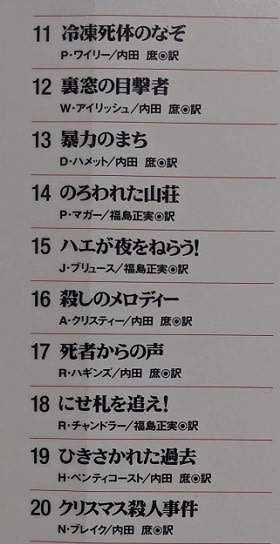 11 冷凍死体のなぞ
P・ワイリー/内田 庶◉訳
12 裏窓の目撃者
W・アイリッシュ/内田 庶◉訳
13 暴力のまち
D・ハメット/内田 庶◉訳
14 のろわれた山荘
P・マガー/福島正実◉訳
15 ハエが夜をねらう!
J・ブリュース/福島正実◉訳
16 殺しのメロディー
A・クリスティー/内田 庶◉訳
17 死者からの声
R・ハギンズ/内田 庶◉訳
18 にせ札を追え!
R・チャンドラー/福島正実◉訳
19 ひきさかれた過去
H・ペンティコースト/内田 庶◉訳
20 クリスマス殺人事件
N・ブレイク/内田 庶◉訳